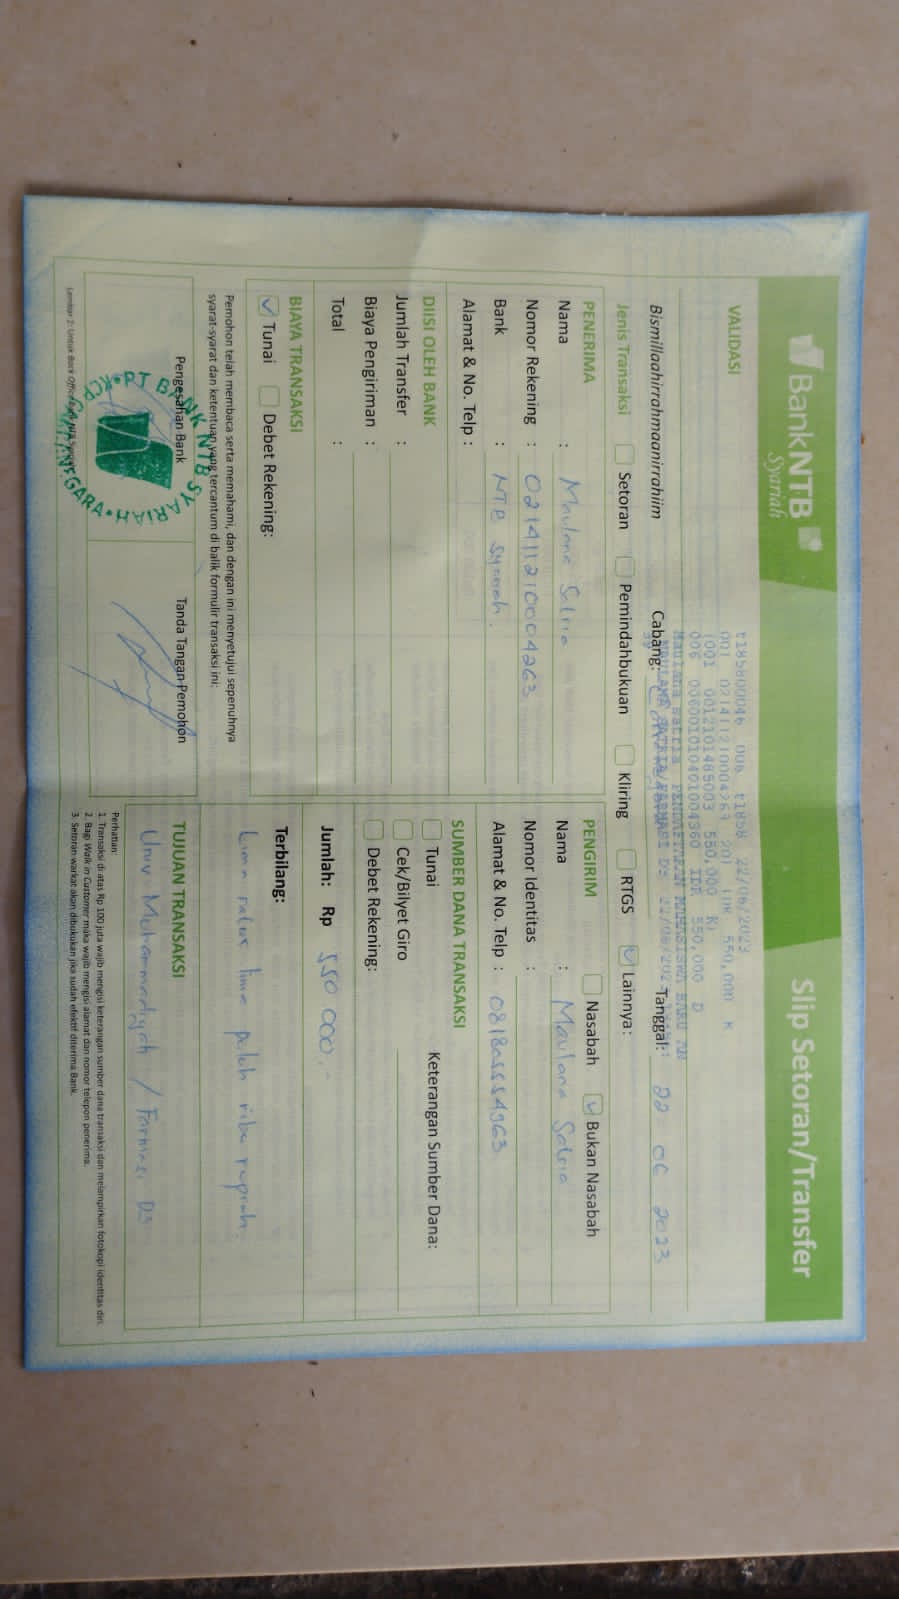 BankNTB
Syariah
Slip Setoran/Transfer
VALIDASI
t185800046 006 t1858 22/06/2023
001 021411210004263 201 IDR 550,000 K
(001 0012101485003 550,000 K)
006 006001010401004360 IDR 550,000 D
Maulana Satria PENDAFTARAN MAHASISWA BARU AN
MAULANA SATRIA/FARMASI D3 22/06/2023
Bismillaahirrahmaanirrahiim
Cabang:
Tanggal: 22 06 2023
Jenis Transaksi
Setoran
Pemindahbukuan
Kliring
RTGS
Lainnya:
PENERIMA
Nama : Maulana Satria
Nomor Rekening : 021411210004263
Bank : NTB Syariah.
Alamat & No. Telp :
PENGIRIM
Nasabah
Bukan Nasabah
Nama : Maulana Satria
Nomor Identitas :
Alamat & No. Telp : 081805554963
DIISI OLEH BANK
Jumlah Transfer :
Biaya Pengiriman :
Total :
SUMBER DANA TRANSAKSI
Tunai
Keterangan Sumber Dana:
Cek/Bilyet Giro
Debet Rekening:
BIAYA TRANSAKSI
Tunai
Debet Rekening:
Jumlah: Rp 550 000,-
Terbilang:
Lima ratus lima puluh ribu rupiah.
Pemohon telah membaca serta memahami, dan dengan ini menyetujui sepenuhnya
syarat-syarat dan ketentuan yang tercantum di balik formulir transaksi ini:
Pengesahan Bank
Tanda Tangan Pemohon
PT BANK NTB SYARIAH
TUJUAN TRANSAKSI
Univ. Muhammadiyah / Farmasi D3
Perhatian:
1. Transaksi di atas Rp 100 juta wajib mengisi keterangan sumber dana transaksi dan melampirkan fotokopi identitas diri.
2. Bagi Walk in Customer maka wajib mengisi alamat dan nomor telepon penerima.
3. Setoran warkat akan dibukukan jika sudah efektif diterima Bank.
Lembar 2: Untuk Back Office